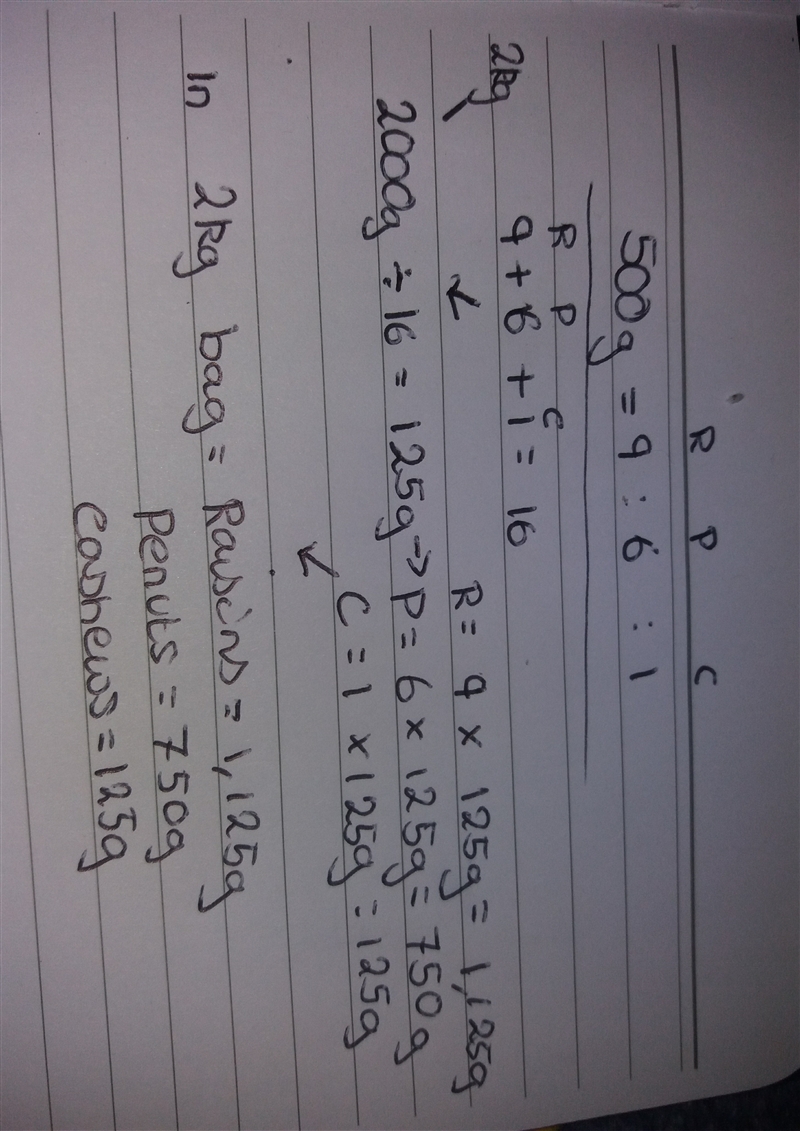 R P C
500g = 9 : 6 : 1
R P C
2kg 9 + 6 + 1 = 16
R = 9 x 125g = 1,125g
2000g ÷ 16 = 125g → P = 6 x 125g = 750g
C = 1 x 125g = 125g
In 2kg bag = Raisins = 1,125g
Penuts = 750g
Cashews = 125g